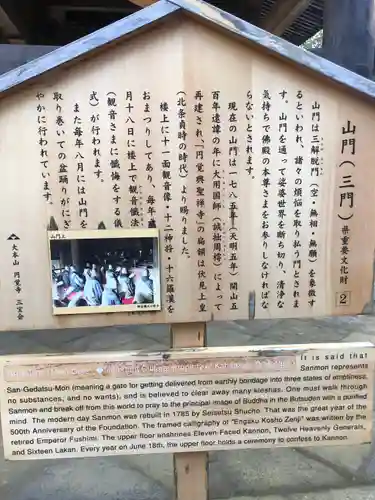 山門(三門) 県重要文化財 2
山門は三解脱門(空・無相・無願)を象徴す
るといわれ、諸々の煩悩を取り払う門とされま
す。山門を通って娑婆世界を断ち切り、清浄な
気持ちで佛殿の本尊さまをお参りしなければな
らないとされます。
現在の山門は一七八五年(天明五年)開山五
百年遠諱の年に大用国師(誠拙周樗)によって
再建され、「円覚興聖禅寺」の扁額は伏見上皇
(北条貞時の時代)より賜りました。
楼上に十一面観音像・十二神将・十六羅漢を
おまつりしてあり、毎年六
月十八日に楼上で観音懺法
(観音さまに懺悔をする儀
式)が行われます。
また毎年八月には山門を
取り巻いての盆踊りがにぎ
やかに行われています。
大本山 円覚寺 三宝会
山門上
It is said that
San-Gedatsu-Mon (meaning a gate for getting delivered from earthly bondage into three states of emptiness, Sanmon represents
no substances, and no wants), and is believed to clear away many kleshas. One must walk through
Sanmon and break off from this world to pray to the principal image of Buddha in the Butsuden with a purified
mind. The modern day Sanmon was rebuilt in 1785 by Seisetsu Shucho. That was the great year of the
500th Anniversary of the Foundation. The framed calligraphy of "Engaku Kosho Zenji" was written by the
retired Emperor Fushimi. The upper floor enshrines Eleven-Faced Kannon, Twelve Heavenly Generals,
and Sixteen Lakan. Every year on June 18th, the upper floor holds a ceremony to confess to Kannon.